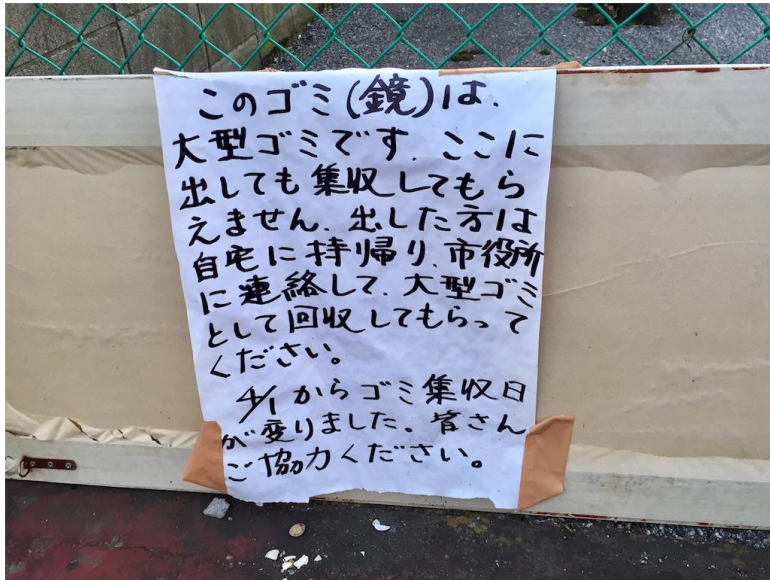 このゴミ(鏡)は、
大型ゴミです。ここに
出しても集収してもら
えません。出した方は
自宅に持帰り、市役所
に連絡して、大型ゴミ
として回収してもらって
ください。
4/1からゴミ集収日
が変りました。皆さん
ご協力ください。